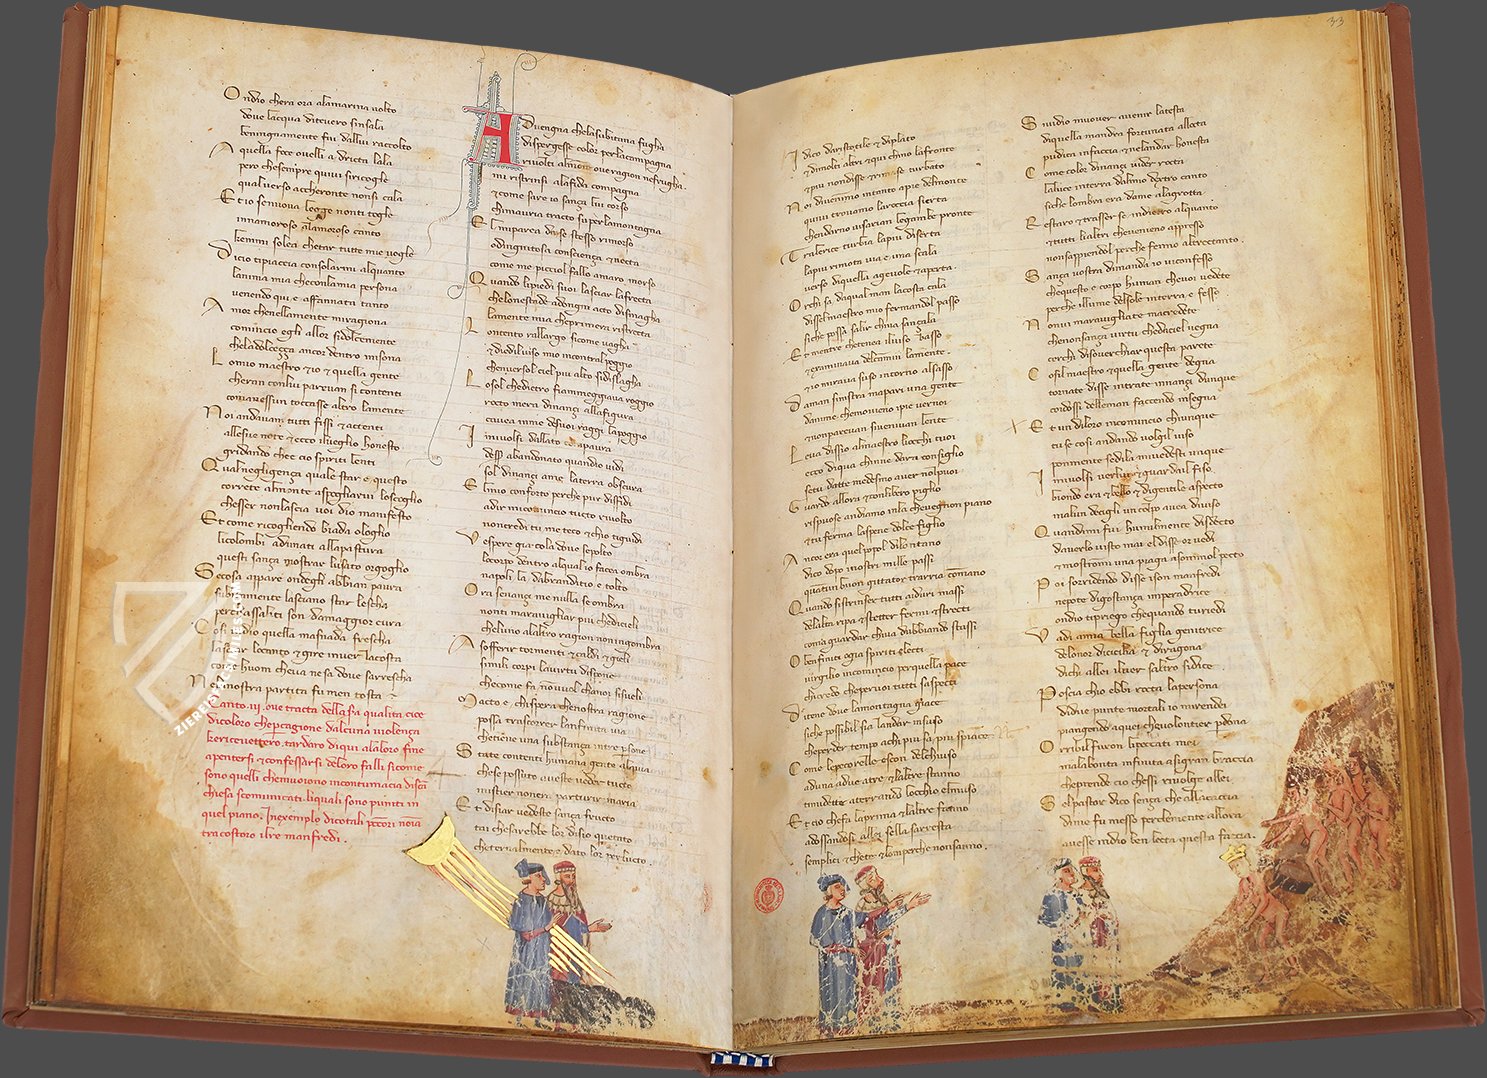 Ondio chera ora alamarina uolto
doue lacqua diteuero sinsala
benignamente fui dallui raccolto
A quella foce ouelli a dricta lala
pero chesempre quiui siricogle
qualuerso accheronte nonsi cala
Et io senuoua legge nonti togle
innamoroso alamoroso canto
kemmi solea chetar tutte mie uogle
Dicio tipiaccia consolarmi alquanto
lanima mia checonlamia persona
uenendo qui e affannata tanto
Amor chenellamente miragiona
comincio egli allor sidolcemente
cheladolceçça ancor dentro misona
Lomio maestro et io et quella gente
cheran conlui pareuan si contenti
comanessun toccasse altro lamente
Noi andauam tutti fissi et actenti
allesue note et ecco iluegllo honesto
gridando cheе cio spiriti lenti
Qualnegligença quale star e questo
correte almonte aspogliarui loscoglio
chesser nonlascia uoi dio manifesto
Et come ricogliendo biada ologlio
licolombi adunati allapastura
questi sança mostrar lusato orgoglio
Secosa appare ondegli abbian paura
subitamente lasciano star lescha
perchassaliti son damaggior cura
Cosi uidio quella masnada frescha
lasciar locanto et gire inuer lacosta
comhuom cheua nesa doue sarrescha
Ne lanostra partita fu men tosta
Canto.iii.oue tracta della
dicoloro che cagione dalcuna uiolença
tardaro di qui alaloro fine
apentersi et confessarsi deloro falli sicome
sono quelli chemuoiono incontumacia
chiesa scomunicati liquali sono puniti in
quel piano. Inexemplo dicotali
tra costoro ilre manfredi.
Auengna chelasubitana fugha
dispergesse color perlacampagna
riuolti almonte oue ragion nefrugha
mi ristrinsi alafida compagna
et come sare io sança lui corso
chimauria tracto su perlamontagna
El miparea dase stesso rimorso
o dingnitosa consciença et necta
come te picciol fallo amaro morso
Quando lipiedi suoi lasciar lafrecta
chelonestade adongni acto dismagha
lamente mia cheprimera ristrecta
Lontento rallargo sicome uagha
et diedi luiso mio incontral poggio
chenuersol ciel piu alto sidislagha
Losol chedietro fiammeggiaua roggio
rocto mera dinançi allafigura
cauea inme desuoi raggi lapoggio
Io miuolsi dallato con paura
dess abandonato quandio uidi
sol dinançi ame laterra obscura
El mio conforto perche pur diffidi
adir mi comincio tucto riuolto
noncredi tu me teco et chio tiguidi
Vespero gia cola doue sepolto
locorpo dentro alqual io facea ombra
napoli la dabrandicio e tolto
Ora senança me nulla se ombra
nonti marauigliar piu chedicieli
cheluno alaltro ragion noningombra
Asofferir tormenti et caldi et gieli
simili corpi lauirtu dispone
checome fa nonuuol chanoi sisueli
Macto e chi spera chenostra ragione
possa trascorrer lanfinita uia
chetiene una substança intre persone
State contenti humana gente alquia
chese possuto aueste ueder tucto
mistier nonera parturir maria
Et disiar uedeste sança fructo
tai chesarebbe lor disio quetato
cheternalmente e dato lor perlucto.
33
Io dico daristotile et diplato
et dimolti altri et qui chino lafronte
et piu nondisse et rimase turbato
Noi diuenimo intanto apie delmonte
quiui trouamo laroccia sierta
chendarno uisarian legambe pronte
Tralerice turbia lapiu diserta
lapiu rimota uia e una scala
uerso diquella ageuole et aperta.
Orchi sa, daqual man lacosta cala
dissel maestro mio fermandol passo
siche possa salir chiua sançala
Et mentre chetenea iluiso basso
et examinaua delcamin lamente.
et io miraua suso intorno alsasso
Daman sinistra mapari una gente
danime chemouieno ipie uernoi
et nonpareuan siueniuan lente
Leua dissio almaestro liocchi tuoi
ecco diqua chinne dara consiglio
setu datte medesmo auer nolpuoi
Guardo allora et conlibero piglio
rispuose andiamo inla cheuegnon piano
et tu ferma laspene dolce figlio
Ancor era quel popol dilontano
idico dopo inostri mille passi
quanti buon gittator trarria con mano
Quando sistrinser tutti aiduri massi
delalta ripa et stetter fermi et strecti
coma guardar chiua dubbiando stassi
O benfiniti ogia spiriti electi
uirgilio incomincio perquella pace
chicredo cheperuoi tutti saspecti
Ditene doue lamontagna giace
siche possibil sia landar insuso
cheperder tempo achi piu sa piu spiace
Come lepecorelle escon delchiuso
aduna adue atre et laltre stanno
timidette aterrando locchio elmuso
Et cio chefa laprima et laltre fanno
adossandosi allei sella sarresta
semplici et chete et lomperche nonsanno.
Siuidio muouer auenir latesta
diquella mandra fortunata allocta
pudica infaccia et nelandar honesta
Come color dinançi uider rocta
laluce interra dalmio dextro canto
siche lombra era dame alagrotta
Restaro et trasser se indietro alquanto
et tutti lialtri cheuenieno appresso
nonsappiendol perche fenno altrectanto.
Sança uostra dimanda io uiconfesso
chequesto e corpo human cheuoi uedete
perche illume delsole interra e fesso
Nonui marauigliate macredete
chenonsança uirtu chedaciel uegna
cerchi disouerchiar questa parete
Cosil maestro et quella gente degna
tornate disse intrate innançi dunque
coidossi delleman faccendo insegna
Et un diloro incomincio chiunque
tu se cosi andando uolgil uiso
ponmente sedila miuedesti unque
Io miuolsi uerlui et guardail fiso
biondo era et bello et digentile aspecto
maluн decigli un colpo auea diuiso
Quandimi fui humilmente disdecto
dauerlo uisto mai el disse or uedi
et mostromi una piaga asommol pecto
Poi sorridendo disse ison manfredi
nepote digostança imperadrice
ondio tipriego chequando turiedi
Vadi amia bella figlia genitrice
delonor dicicilia et diragona
dichi allei iluer saltro sidice.
Poscia chio ebbi rocta lapersona
didue punte mortali io mirendei
piangendo aquei cheuolontier perdona
Orribil furon lipeccati mei
malabonta infinita asigran braccia
cheprende cio chessi riuolge allei
Sel pastor dico sença che allacaccia
dime fu messo perclemente allora
auesse indio ben lecta questa faccia.